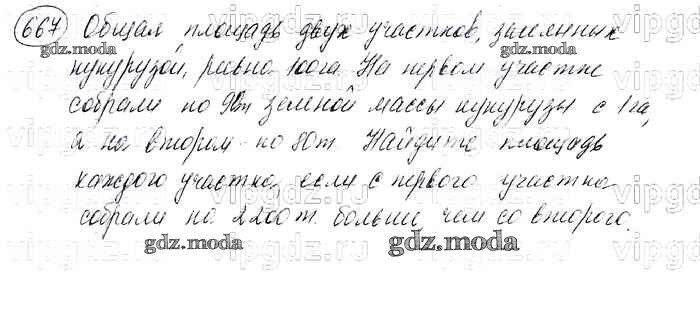 667 Общая площадь двух участков, засеянных
кукурузой, равна 100га. На первом участке
собрали по 90т зеленой массы кукурузы с 1га,
а на втором по 80т. Найдите площадь
каждого участка если с первого участка
собрали на 2200т. больше чем со второго.
gdz.moda
gdz.moda
gdz.moda
gdz.moda